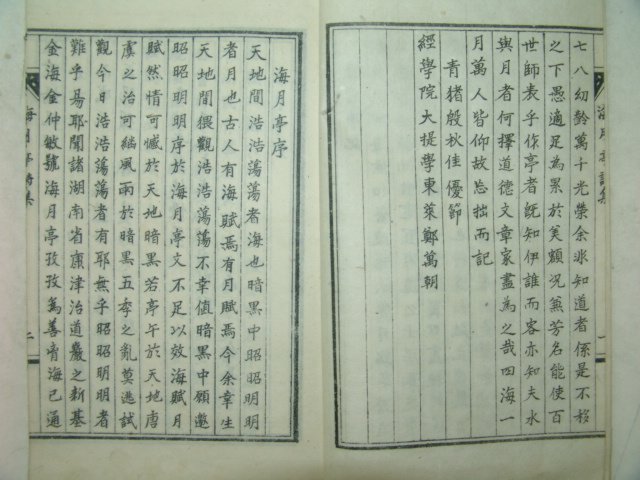 七八幼齡萬千光榮余非知道者係是不移
之下愚適足為累於美顯況兼芳名能使百
世師表乎作亭者旣知伊誰而客亦知夫水
與月者何擇道德文章家盡為之哉四海一
月萬人皆仰故忘拙而記
青猪殷秋佳優節
經學院大提學東萊鄭萬朝
海月亭序
天地間浩浩蕩蕩者海也暗黑中昭昭明明
者月也古人有海賦焉有月賦焉今余幸生
天地間猥觀浩浩蕩蕩不幸値暗黑中願邀
昭昭明明序於海月亭文不足以效海賦月
賦然情可憾於天地暗黑若亭午於天地唐
虞之治可繼風雨於暗黑五季之亂莫逃試
觀今日浩浩蕩蕩者有耶無乎昭昭明明者
難乎易耶聞諸湖南省康津治道巖之新基
金海金仲敏號海月亭孜孜為善齊海已通